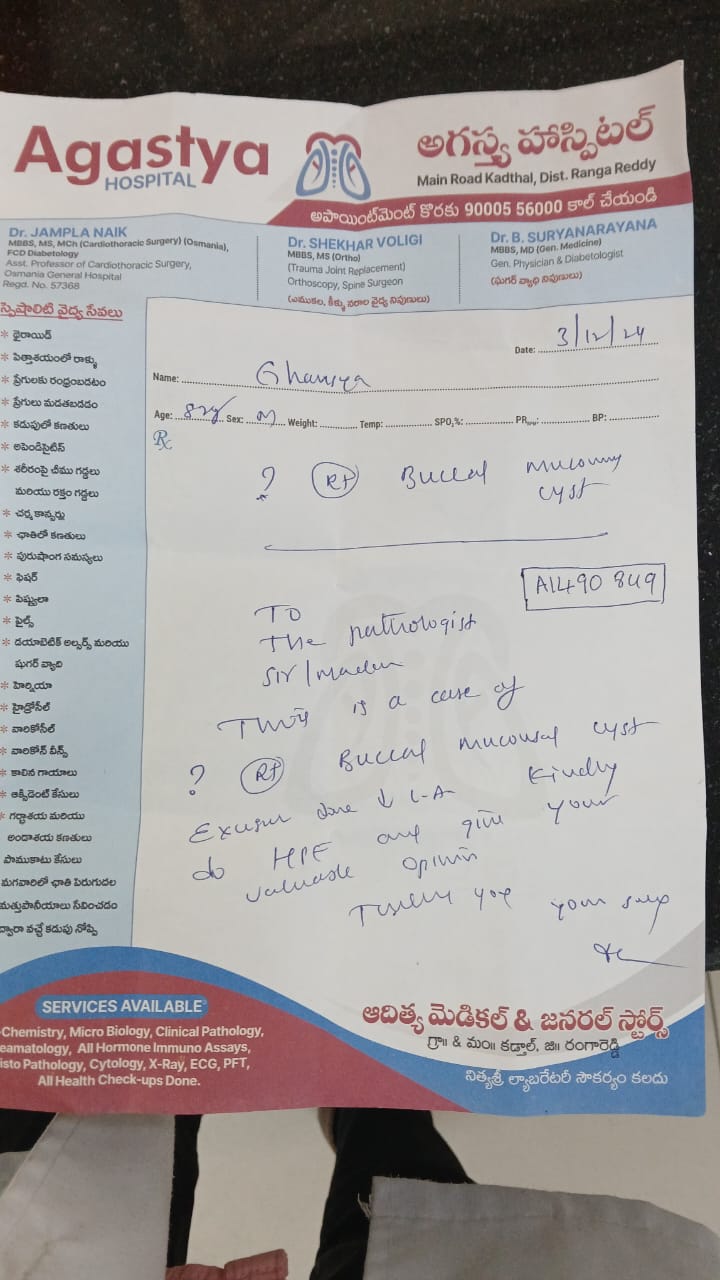 Agastya
HOSPITAL
అగస్త్య హాస్పిటల్
Main Road Kadthal, Dist. Ranga Reddy
అపాయింట్‌మెంట్ కొరకు 90005 56000 కాల్ చేయండి
Dr. JAMPLA NAIK
MBBS, MS, MCh (Cardiothoracic Surgery) (Osmania),
FCD Diabetology
Asst. Professor of Cardiothoracic Surgery,
Osmania General Hospital
Regd. No. 57368
Dr. SHEKHAR VOLIGI
MBBS, MS (Ortho)
(Trauma Joint Replacement)
Orthoscopy, Spine Surgeon
(ఎముకల, కీళ్ళు నరాల వైద్య నిపుణులు)
Dr. B. SURYANARAYANA
MBBS, MD (Gen. Medicine)
Gen. Physician & Diabetologist
(షుగర్ వ్యాధి నిపుణులు)
స్పెషాలిటి వైద్య సేవలు
* థైరాయిడ్
* పిత్తాశయంలో రాళ్ళు
* ప్రేగులకు రంధ్రంబడటం
* ప్రేగులు మడతబడడం
* కడుపులో కణతులు
* అపెండిసైటిస్
* శరీరంపై చీము గడ్డలు
మరియు రక్తం గడ్డలు
* చర్మ కాన్సర్లు
* ఛాతిలో కణతులు
* పురుషాంగ సమస్యలు
* ఫిషర్
* పిష్టులా
* పైల్స్
* డయాబెటిక్ అల్సర్స్ మరియు
షుగర్ వ్యాధి
* హెర్నియా
* హైడ్రోసీల్
* వారికోసీల్
* వారికోస్ వీన్స్
* కాలిన గాయాలు
* ఆక్సిడెంట్ కేసులు
* గర్భాశయ మరియు
అండాశయ కణతులు
పాముకాటు కేసులు
మగవారిలో ఛాతి పెరుగుదల
మత్తుపానీయాలు సేవించడం
ద్వారా వచ్చే కడుపు నోప్పి
Date: 3/12/24
Name:
Age: 8 Sex: M Weight: Temp: SPO2%: PR BP:
Rx
? Rt Buccal mucosal
cyst
A1490849
To
The pathologist
Sir/madam
This is a case of
? Rt Buccal mucosal cyst
Excision done ↓ L-A Kindly
do HPE and give your
valuable opinion
Thank you
SERVICES AVAILABLE
Chemistry, Micro Biology, Clinical Pathology,
eamatology, All Hormone Immuno Assays,
isto Pathology, Cytology, X-Ray, ECG, PFT,
All Health Check-ups Done.
ఆదిత్య మెడికల్ & జనరల్ స్టోర్స్
గ్రా॥ & మం॥ కడ్తాల్, జి॥ రంగారెడ్డి
నిత్యశ్రీ ల్యాబరేటరీ సౌకర్యం కలదు